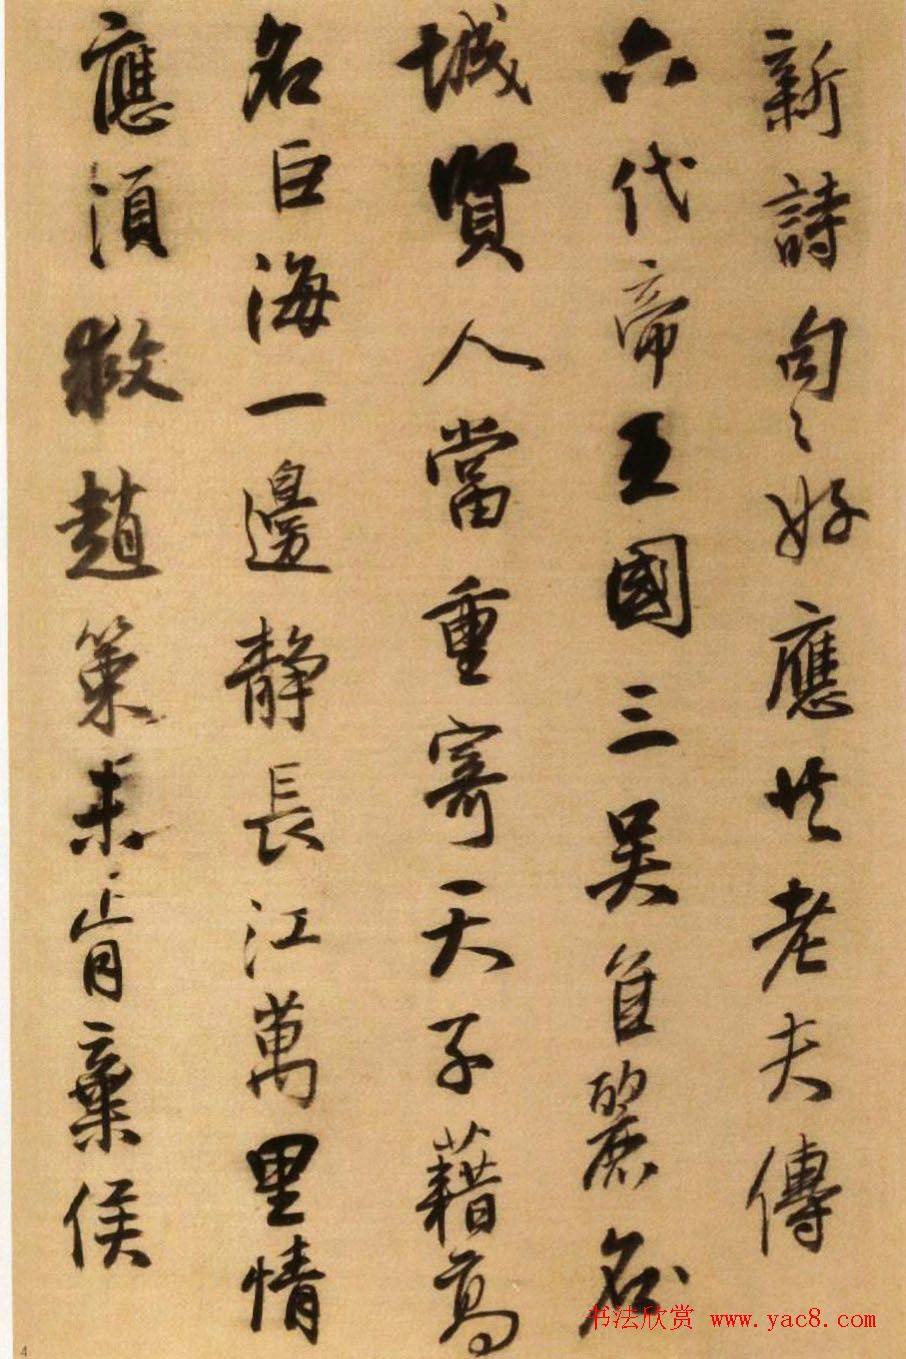 新詩句〻好應共老夫傳
六代帝王國三吳佳麗名
城賢人當重寄天子藉高
名巨海一邊靜長江萬里情
應須救趙策未肯棄侯
书法欣赏 www.yac8.com
4